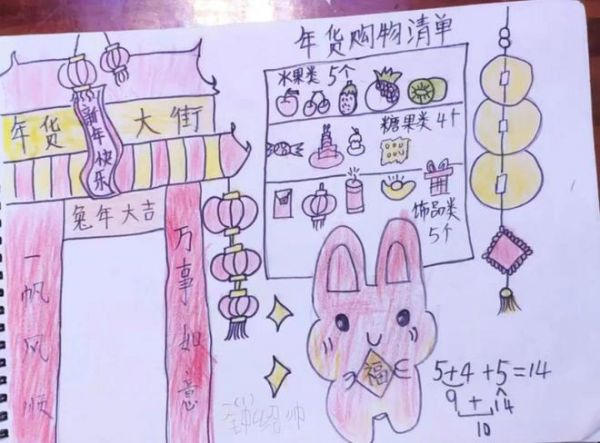 年货购物清单
水果类 5个
糖果类 4个
饰品类
5个
年货 大街
新年快乐
兔年大吉
一帆风顺
万事如意
福
5+4+5=14
9+14
10